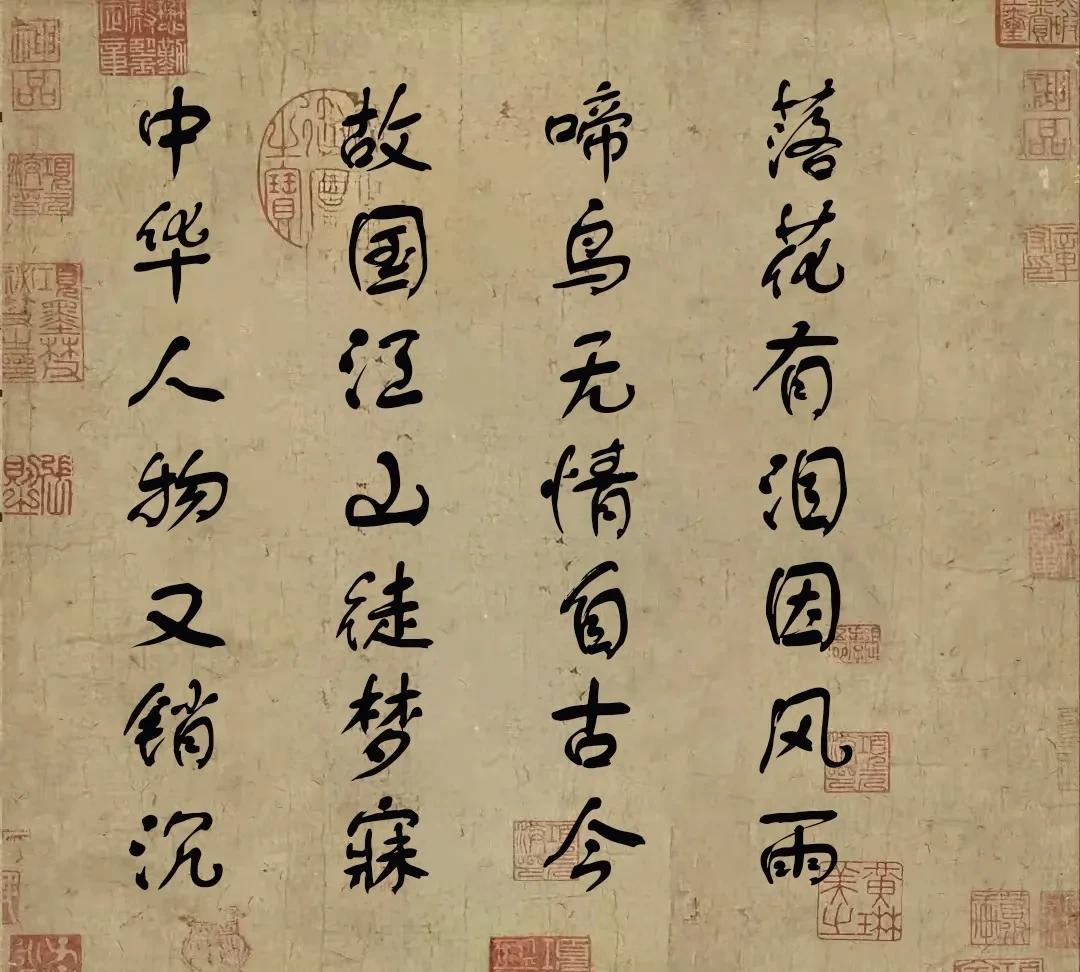 落花有泪因风雨
啼鸟无情自古今
故国江山徒梦寐
中华人物又销沉